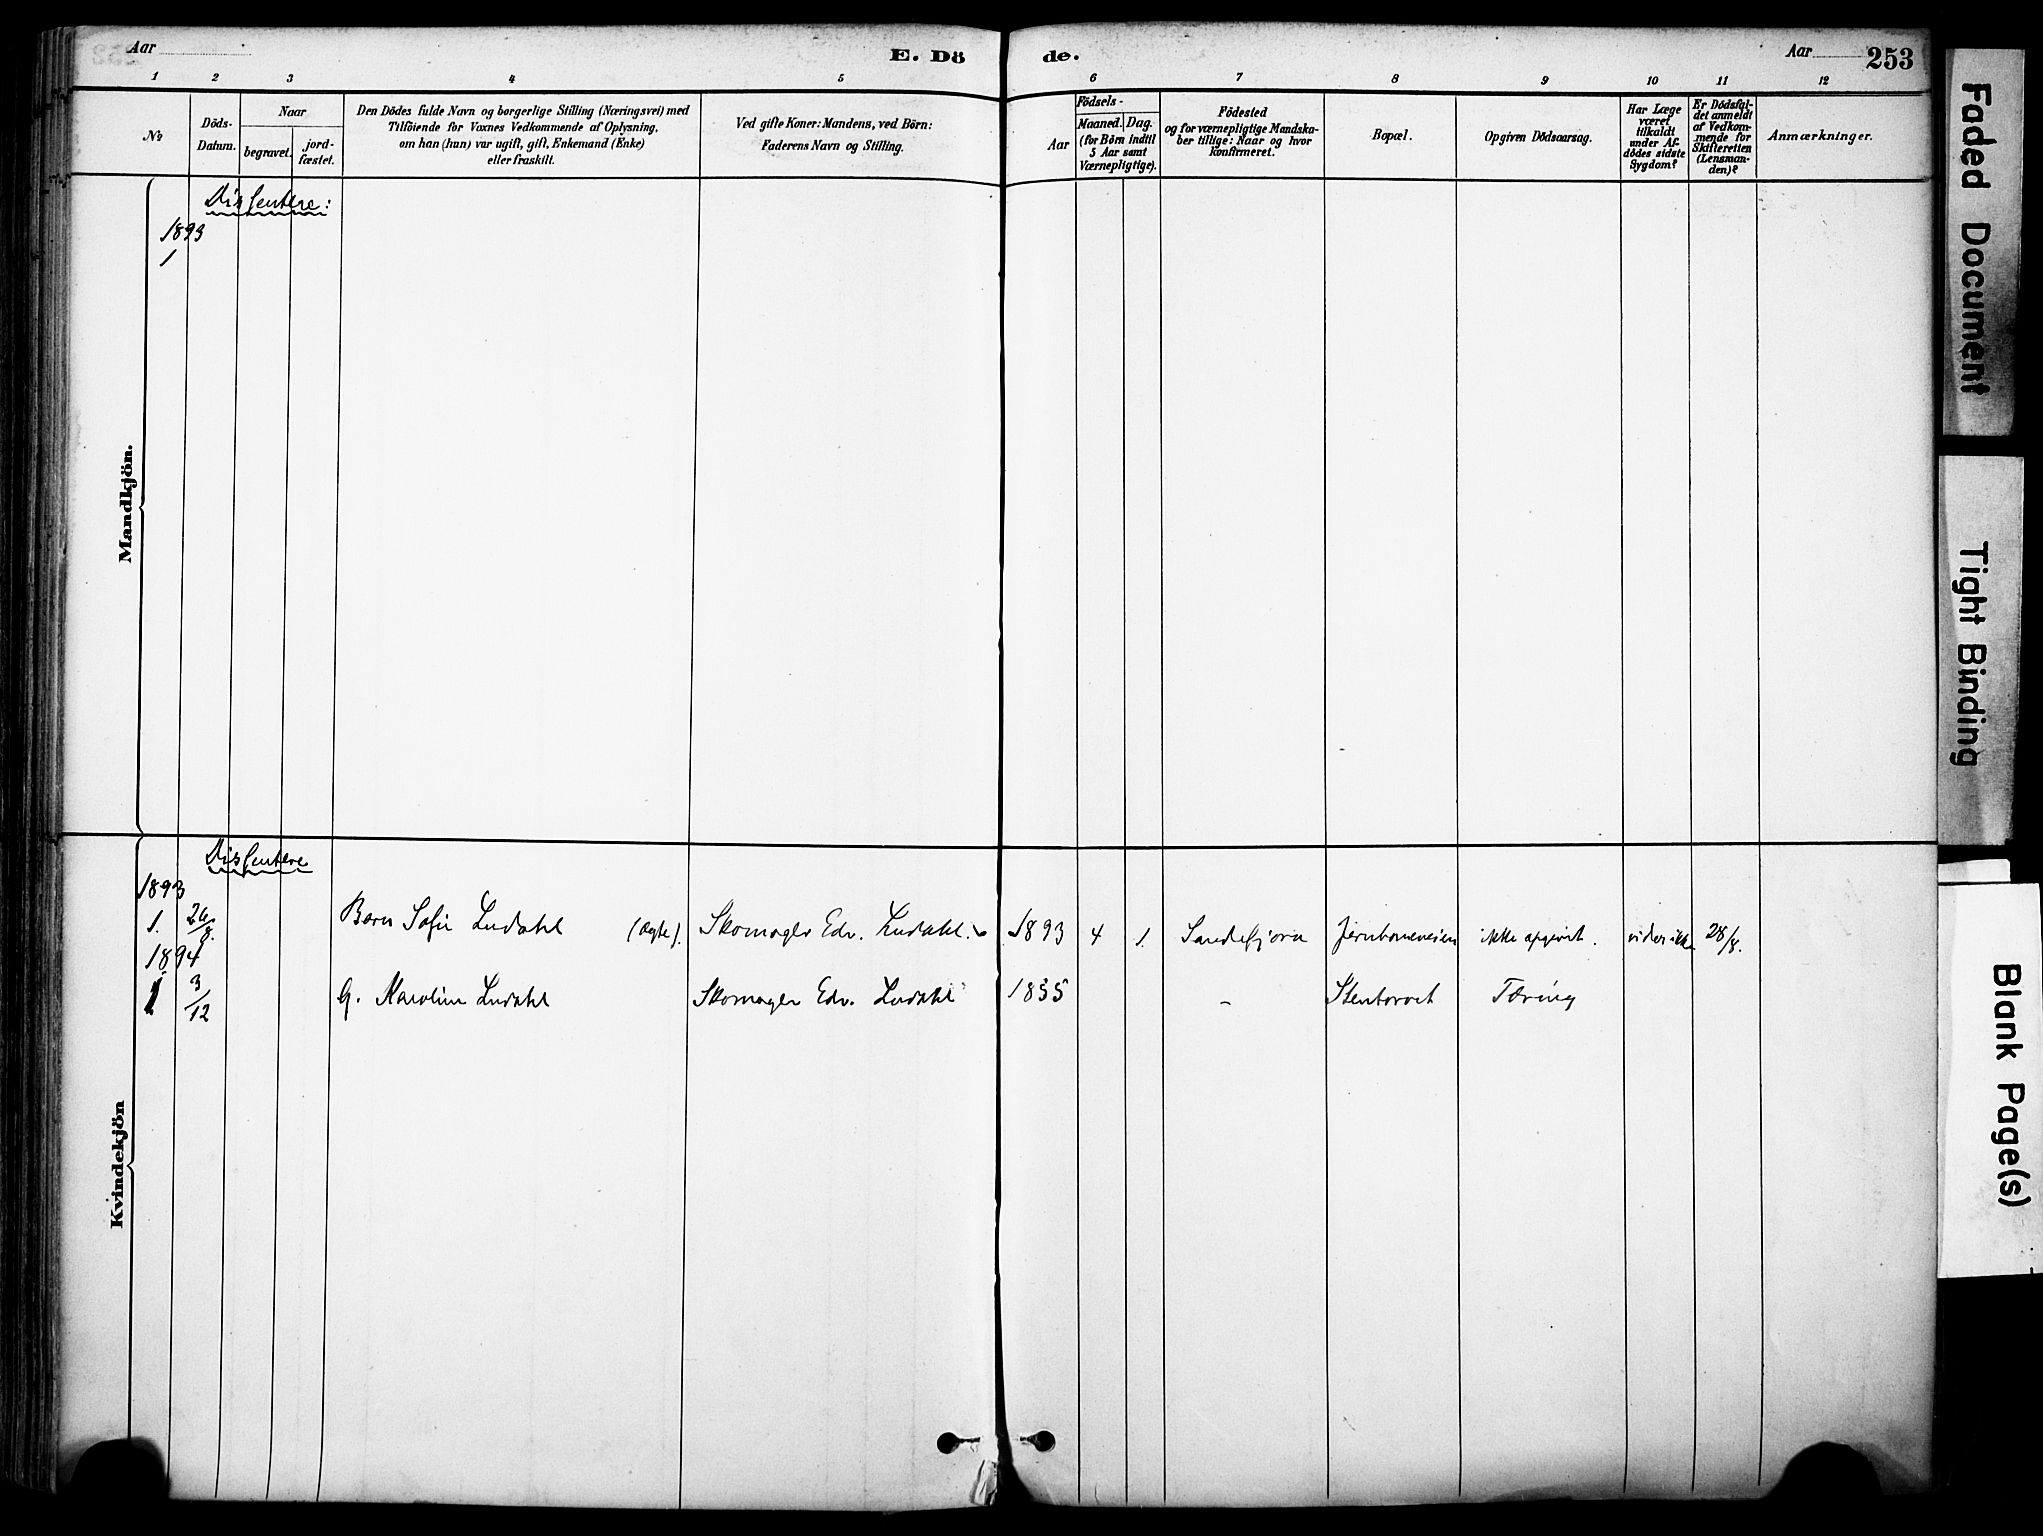 Aar
E. Dö
de.
Aar
253
1 2 3 4 5 6 7 8 9 10 11 12
No
Döds-
Datum.
Naar
begravet.
jord-
fæstet.
Den Dödes fulde Navn og borgerlige Stilling (Næringsvei) med
Tilföiende for Voxnes Vedkommende af Oplysning,
om han (hun) var ugift, gift, Enkemand (Enke)
eller fraskilt.
Ved gifte Koner: Mandens, ved Börn:
Faderens Navn og Stilling.
Födsels-
Aar
Maaned.
Dag.
(for Börn indtil
5 Aar samt
Værnepligtige).
Födested
og for værnepligtige Mandska-
ber tillige: Naar og hvor
konfirmeret.
Bopæl.
Opgiven Dödsaarsag.
Har Læge
været
tilkaldt
under Af-
dödes sidste
Sygdom?
Er Dödsfal-
det anmeldt
af Vedkom-
mende for
Skifteretten
(Lensman-
den)?
Anmærkninger.
Mandkjön.
Dissentere:
1893
1
Kvindekjön
Dissentere
1893
1. 26/8. Barn Sofie Lindahl (ægte). Skomager Edv. Lindahl. 1893 4 1. Sandefjord Jernbaneveien ikke opgivet. vides ikke 28/8.
1894
1 3/12 G. Karoline Lindahl Skomager Edv. Lindahl 1855 - Stentorvet Tæring
Faded Document
Tight Binding
Blank Page(s)